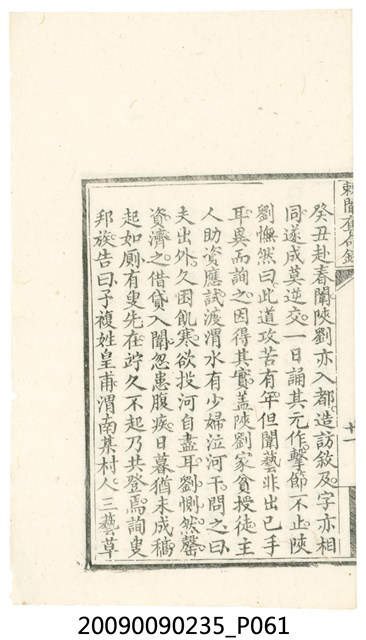 癸丑赴春闈陜劉亦入都造訪敘及字亦相
同遂成莫逆交一日誦其元作擊節不止陜
劉憮然曰此道攻苦有年但闈藝非出己手
耳異而詢之因得其實蓋陜劉家貧授徒主
人助資應試渡渭水有少婦泣河干問之曰
夫出外久困飢寒欲投河自盡耳劉惻然罄
資濟之借貸入闈忽患腹疾日暮猶未成稿
起如厠有叟先在竚久不起乃共登焉詢叟
邦族告曰予複姓皇甫渭南某村人三藝草
廿一
20090090235_P061